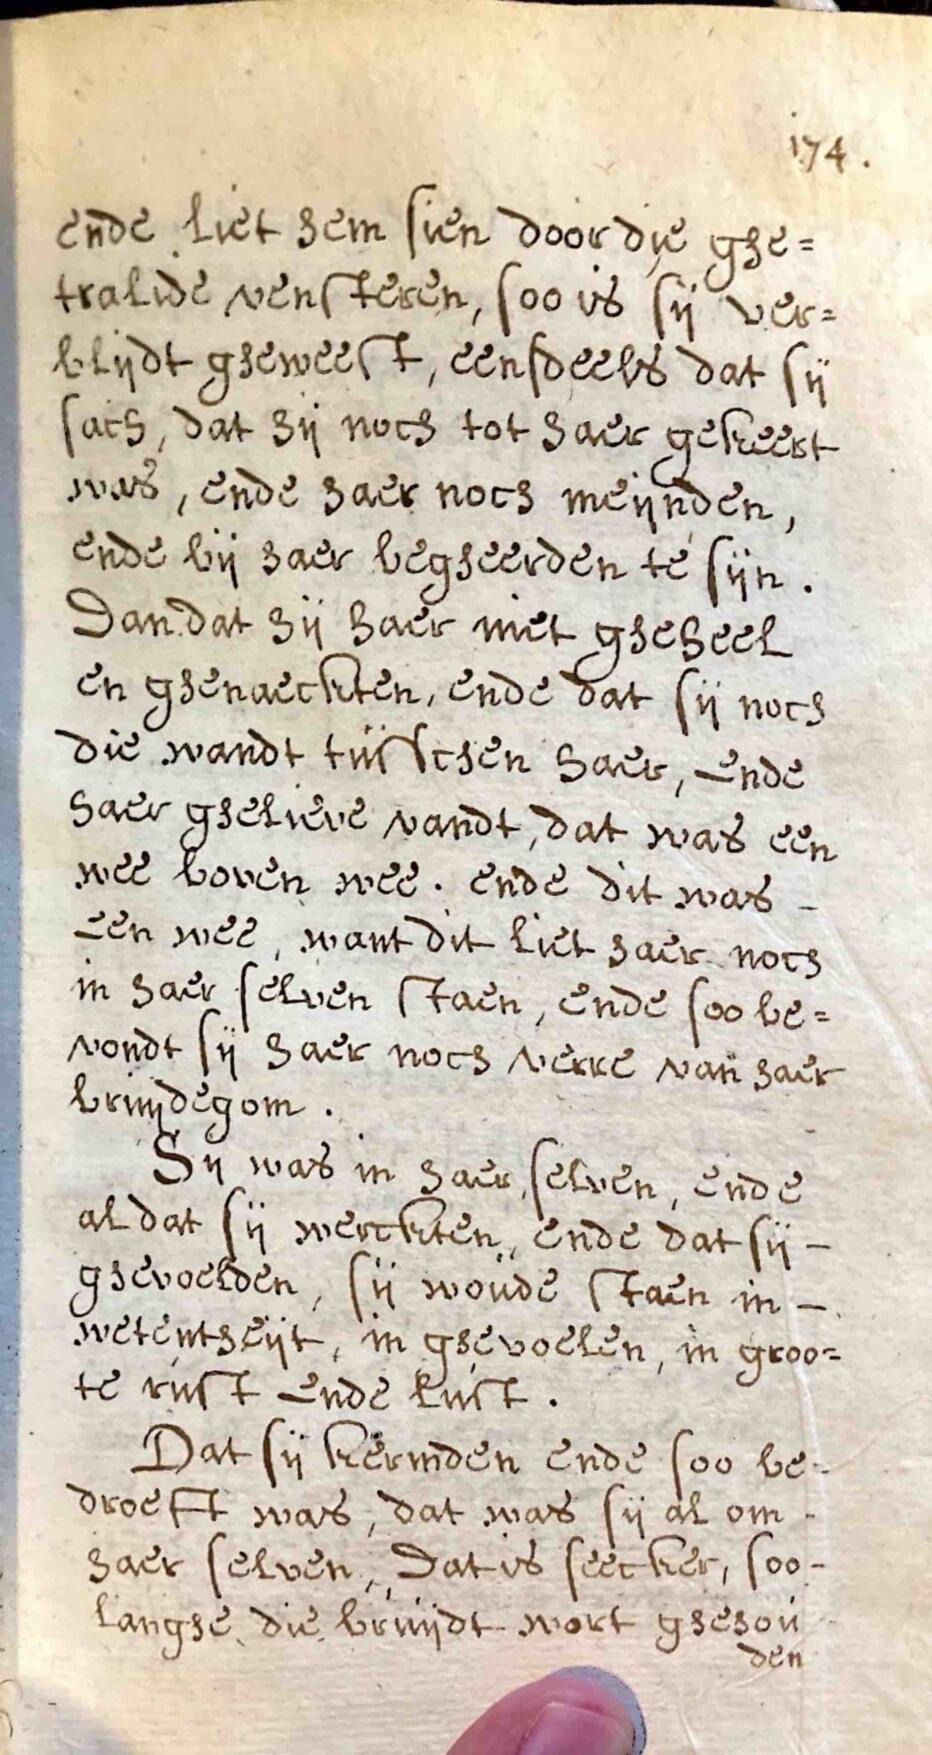 174.
ende liet hem sien door die ghe=
tralide vensteren, soo is sij ver=
blijdt gheweest, eensdeels dat sij
sach, dat hij noch tot haer gekeert
was, ende haer noch meijnden,
ende bij haer begheerden te sijn.
Dan dat hij haer niet gheheel
en ghenaeckten, ende dat sij noch
die wandt tusschen haer, ende
haer ghelieve vandt, dat was een
wee boven wee. ende dit was -
een wee, want dit liet haer noch
in haer selven staen, ende soo be=
vondt sij haer noch verre van haer
bruijdegom.
Sij was in haer selven, ende
al dat sij werckten, ende dat sij -
ghevoelden, sij woude staen in -
wetentheijt, in ghevoelen, in groo=
te rust ende lust.
Dat sij kermden ende soo be-
droeft was, dat was sij al om -
haer selven, Dat is seecker, soo-
langhe die bruijdt wort ghehou
den